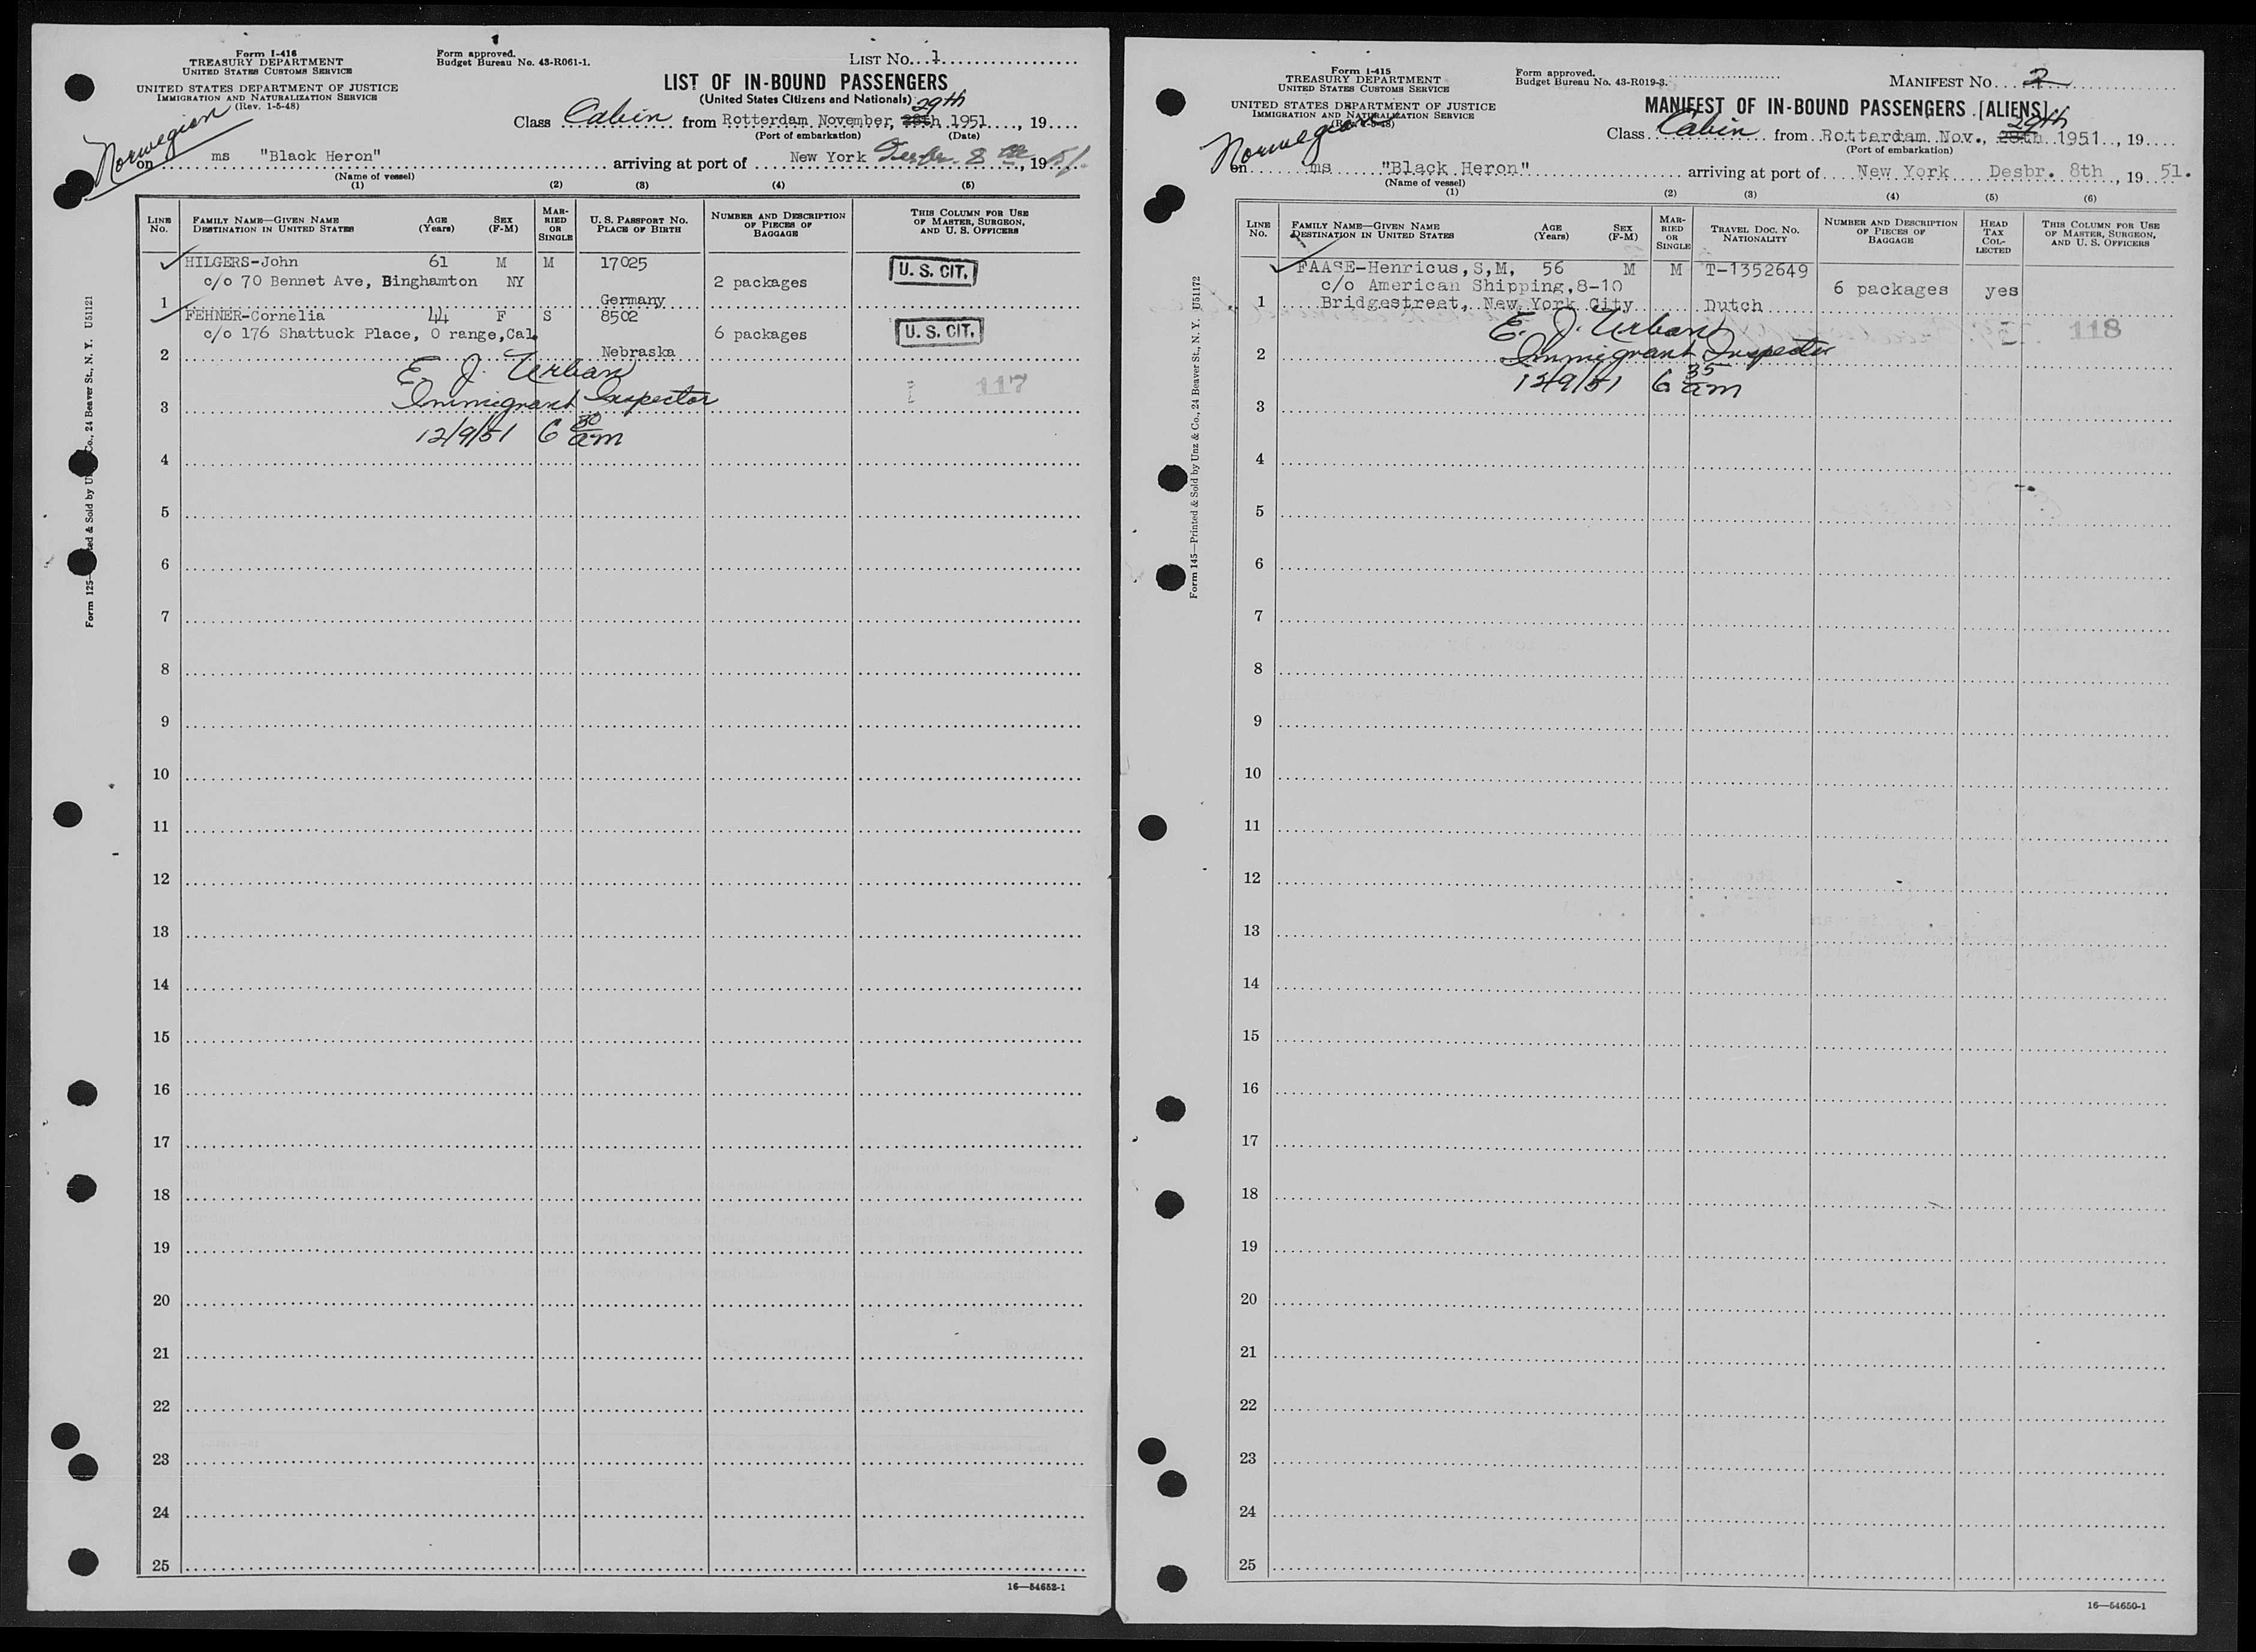 Form I-416
TREASURY DEPARTMENT
UNITED STATES CUSTOMS SERVICE
UNITED STATES DEPARTMENT OF JUSTICE
IMMIGRATION AND NATURALIZATION SERVICE
(Rev. 1-5-48)
Form approved.
Budget Bureau No. 43-R061-1.
LIST No. 1
LIST OF IN-BOUND PASSENGERS
(United States Citizens and Nationals)
29th
Class Cabin from Rotterdam November, 28th 1951, 19
(Port of embarkation) (Date)
Norwegian
on ms "Black Heron" arriving at port of New York Desbr. 8th, 1951.
(Name of vessel)
(1) (2) (3) (4) (5)
LINE No. FAMILY NAME—GIVEN NAME DESTINATION IN UNITED STATES AGE (Years) SEX (F-M) MARRIED OR SINGLE U. S. PASSPORT NO. PLACE OF BIRTH NUMBER AND DESCRIPTION OF PIECES OF BAGGAGE THIS COLUMN FOR USE OF MASTER, SURGEON, AND U. S. OFFICERS
HILGERS-John 61 M M 17025 U. S. CIT.
c/o 70 Bennet Ave, Binghamton NY 2 packages
1 Germany
FEHNER-Cornelia 44 F S 8502
c/o 176 Shattuck Place, O range,Cal. 6 packages U. S. CIT.
2 Nebraska
E. J. Urban
3 Immigrant Inspector 117
12/9/51 6 30 am
4
5
6
7
8
9
10
11
12
13
14
15
16
17
18
19
20
21
22
23
24
25
16—54652-1
Form 125— ted & Sold by U Co., 24 Beaver St., N. Y. U51121
Form I-415
TREASURY DEPARTMENT
UNITED STATES CUSTOMS SERVICE
UNITED STATES DEPARTMENT OF JUSTICE
IMMIGRATION AND NATURALIZATION SERVICE
(Rev. 1-5-48)
Form approved.
Budget Bureau No. 43-R019-3.
MANIFEST No. 2
MANIFEST OF IN-BOUND PASSENGERS (ALIENS)
29th
Class Cabin from Rotterdam Nov., 28th 1951, 19
(Port of embarkation)
Norwegian
on ms "Black Heron" arriving at port of New York Desbr. 8th, 1951.
(Name of vessel)
(1) (2) (3) (4) (5) (6)
LINE No. FAMILY NAME—GIVEN NAME DESTINATION IN UNITED STATES AGE (Years) SEX (F-M) MARRIED OR SINGLE TRAVEL DOC. NO. NATIONALITY NUMBER AND DESCRIPTION OF PIECES OF BAGGAGE HEAD TAX COLLECTED THIS COLUMN FOR USE OF MASTER, SURGEON, AND U. S. OFFICERS
FAASE-Henricus,S,M, 56 M M T-1352649
c/o American Shipping,8-10 6 packages yes
1 Bridgestreet, New York City Dutch
E. J. Urban 118
2 Immigrant Inspector
12/9/51 6 35 am
3
4
5
6
7
8
9
10
11
12
13
14
15
16
17
18
19
20
21
22
23
24
25
16—54650-1
Form 145—Printed & Sold by Unz & Co., 24 Beaver St., N. Y. U51172